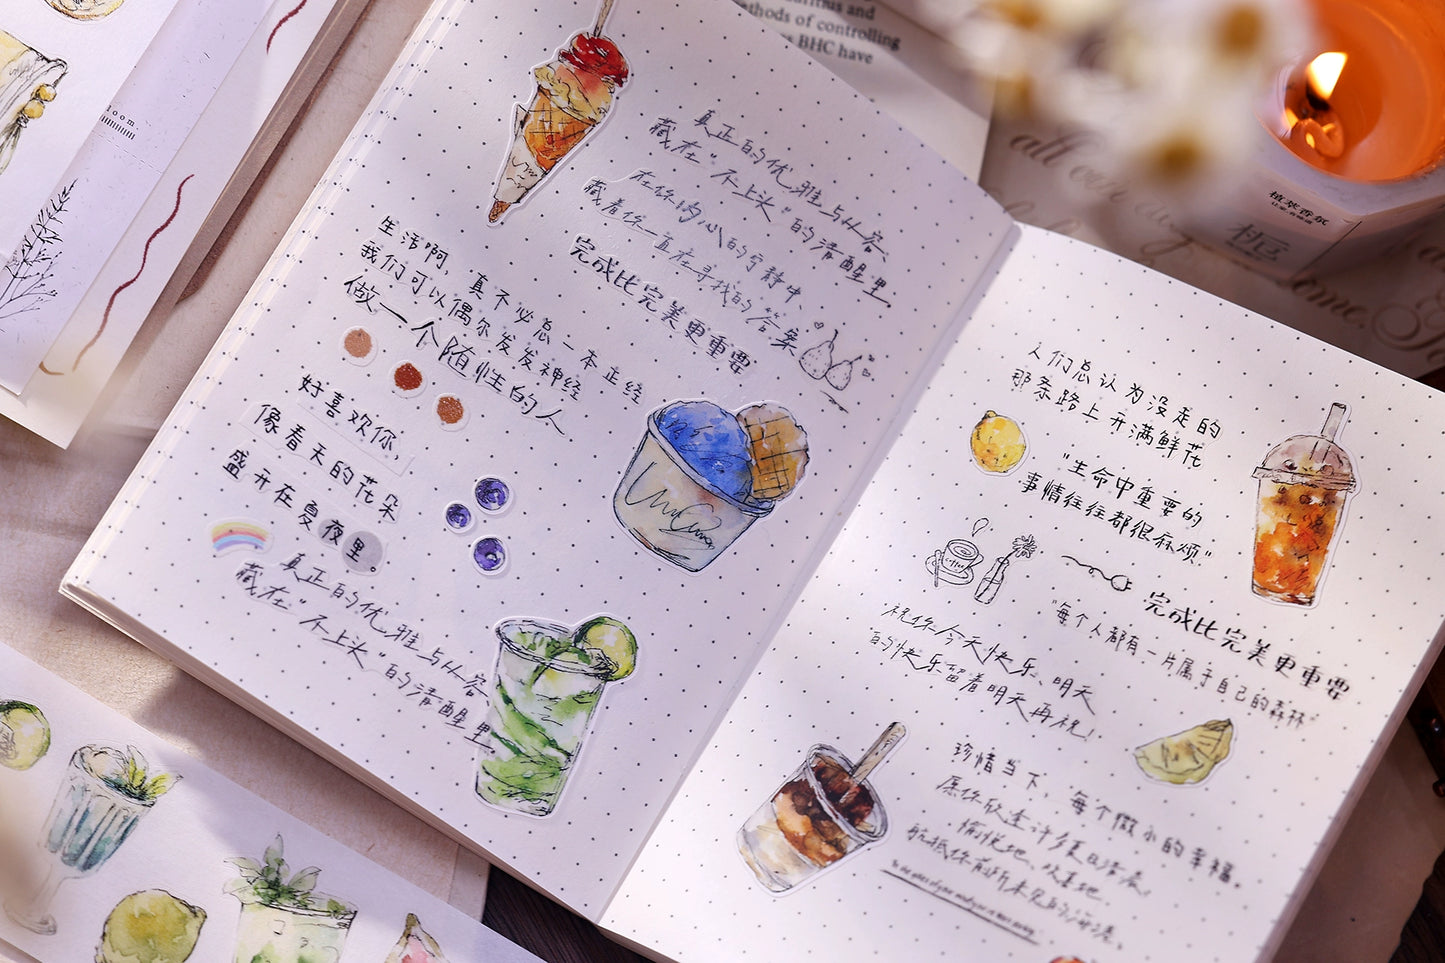 真正的优雅与从容,
藏在"不上头"的清醒里
在你内心的宁静中
藏着你一直在寻找的答案
完成比完美更重要
生活啊,真不必总一本正经
我们可以偶尔发发神经
做一个随性的人
好喜欢你,
像春天的花朵
盛开在夏夜里。
真正的优雅与从容
藏在"不上头"的清醒里
人们总认为没走的
那条路上开满鲜花
"生命中重要的
事情往往都很麻烦"
完成比完美更重要
"每个人都有一片属于自己的森林"
祝你今天快乐、明天
的快乐留着明天再祝!
珍惜当下,每个微小的幸福。
愿你欣逢许多夏日清晨,
愉悦地、欢喜地
航抵你前所未见的海港,
ethods of controlling
BHC have
植萃香氛
all
oom